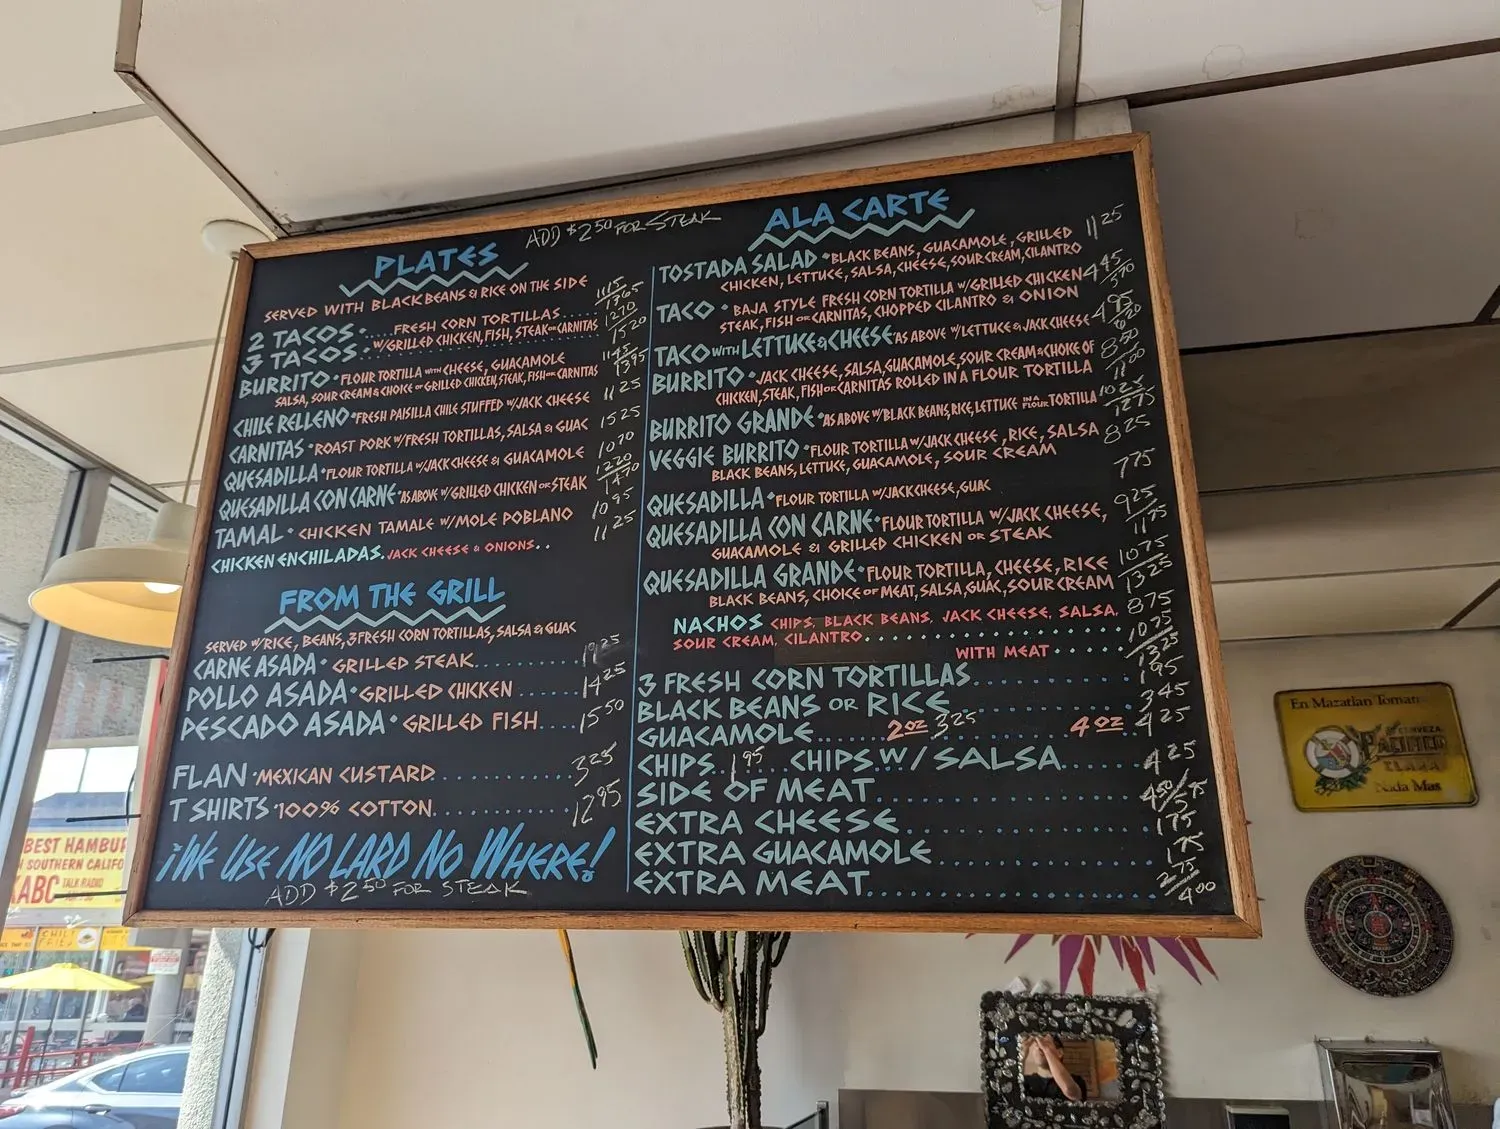 ADD $2.50 FOR STEAK
PLATES
SERVED WITH BLACK BEANS & RICE ON THE SIDE
2 TACOS • .... FRESH CORN TORTILLAS..... 11 15 / 13 65
3 TACOS • W/GRILLED CHICKEN, FISH, STEAK OR CARNITAS 12 70 / 15 20
BURRITO • FLOUR TORTILLA WITH CHEESE, GUACAMOLE 11 45 / 13 95
SALSA, SOUR CREAM & CHOICE OF GRILLED CHICKEN, STEAK, FISH OR CARNITAS
CHILE RELLENO • FRESH PAISILLA CHILE STUFFED W/JACK CHEESE 11 25
CARNITAS • ROAST PORK W/FRESH TORTILLAS, SALSA & GUAC 15 25
QUESADILLA • FLOUR TORTILLA W/JACK CHEESE & GUACAMOLE 10 70
QUESADILLA CON CARNE • AS ABOVE W/GRILLED CHICKEN OR STEAK 12 20 / 14 70
TAMAL • CHICKEN TAMALE W/MOLE POBLANO 10 95
CHICKEN ENCHILADAS. JACK CHEESE & ONIONS... 11 25
FROM THE GRILL
SERVED W/RICE, BEANS, 3 FRESH CORN TORTILLAS, SALSA & GUAC
CARNE ASADA • GRILLED STEAK..........
POLLO ASADA • GRILLED CHICKEN ...... 14 25
PESCADO ASADA • GRILLED FISH.... 15 50
FLAN • MEXICAN CUSTARD ............ 3 25
T SHIRTS • 100% COTTON............ 12 95
¡WE USE NO LARD NO WHERE!
ADD $2.50 FOR STEAK
ALA CARTE
TOSTADA SALAD • BLACK BEANS, GUACAMOLE, GRILLED 11 25
CHICKEN, LETTUCE, SALSA, CHEESE, SOUR CREAM, CILANTRO
TACO • BAJA STYLE FRESH CORN TORTILLA W/GRILLED CHICKEN 4 45 / 5 70
STEAK, FISH OR CARNITAS, CHOPPED CILANTRO & ONION
TACO WITH LETTUCE & CHEESE • AS ABOVE W/LETTUCE & JACK CHEESE 4 95 / 6 20
BURRITO • JACK CHEESE, SALSA, GUACAMOLE, SOUR CREAM & CHOICE OF 8 50 / 11 00
CHICKEN, STEAK, FISH OR CARNITAS ROLLED IN A FLOUR TORTILLA
BURRITO GRANDE • AS ABOVE W/BLACK BEANS, RICE, LETTUCE IN A FLOUR TORTILLA 10 25 / 12 75
VEGGIE BURRITO • FLOUR TORTILLA W/JACK CHEESE, RICE, SALSA 8 25
BLACK BEANS, LETTUCE, GUACAMOLE, SOUR CREAM
QUESADILLA • FLOUR TORTILLA W/JACK CHEESE, GUAC 7 75
QUESADILLA CON CARNE • FLOUR TORTILLA W/JACK CHEESE, 9 25 / 11 75
GUACAMOLE & GRILLED CHICKEN OR STEAK
QUESADILLA GRANDE • FLOUR TORTILLA, CHEESE, RICE 10 75 / 13 25
BLACK BEANS, CHOICE OF MEAT, SALSA, GUAC, SOUR CREAM
NACHOS CHIPS, BLACK BEANS, JACK CHEESE, SALSA, 8 75
SOUR CREAM, CILANTRO..............
WITH MEAT ..... 10 75 / 13 25
3 FRESH CORN TORTILLAS............ 1 95
BLACK BEANS OR RICE............ 3 45
GUACAMOLE...... 2 OZ 3.25 4 OZ 4 25
CHIPS.. 1 95 CHIPS W/ SALSA...... 4 25
SIDE OF MEAT..................
EXTRA CHEESE.................. 1 75
EXTRA GUACAMOLE............... 1 75
EXTRA MEAT.................... 2 75 / 4 00
En Mazatlan Tomar
CERVEZA
PACIFICO
CLARA
Nada Mas
BEST HAMBU
SOUTHERN CALIFO
KABC TALK RADIO
CHILI
FRIES